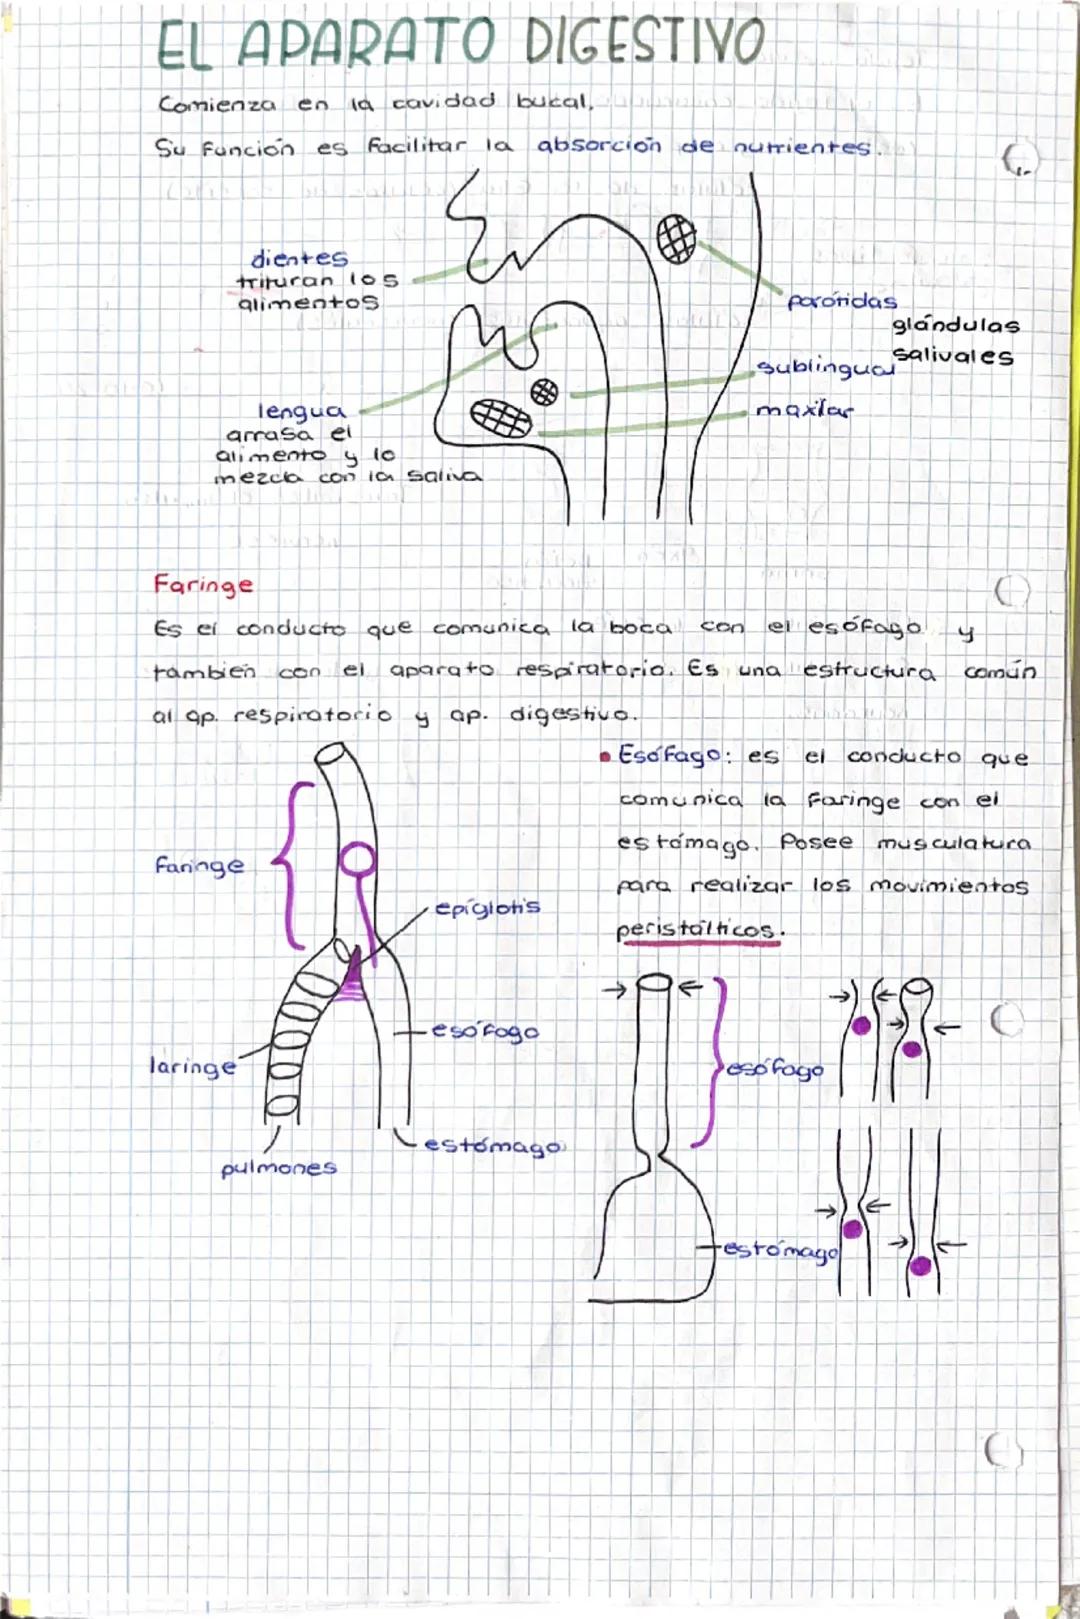 EL APARATO DIGESTIVO
Comienza en la cavidad bucal.
Su función es facilitar la absorción de nutrientes.
dientes
trituran los
alimentos
parótidas
glándulas
salivales
sublingual
maxilar
lengua
arrasa el
alimento y lo
mezcla con la saliva
Faringe
Es el conducto que comunica la boca con el esófago y
también con el aparato respiratorio. Es una estructura común
al ap. respiratorio y ap. digestivo.
• Esófago: es el conducto que
comunica la faringe con el
estómago. Posee musculatura
para realizar los movimientos
peristálticos.
faringe
epíglotis
esófogo
laringe
estómago
pulmones
esófago
estómago